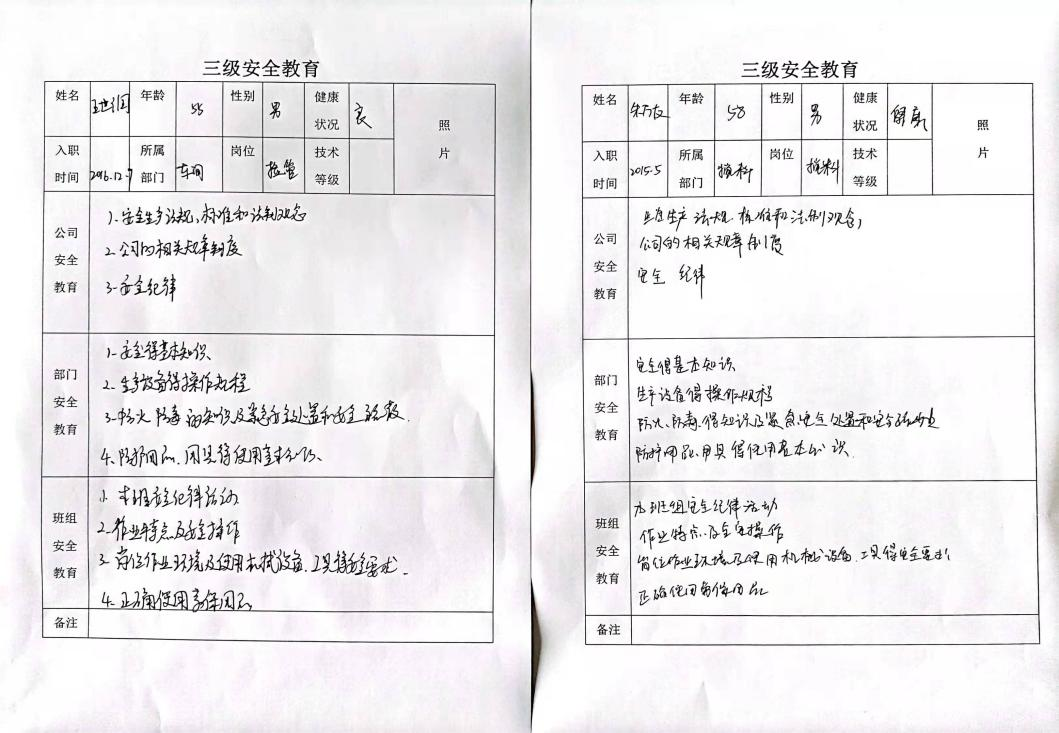 三级安全教育
姓名 年龄 58 性别 男 健康状况 良 照片
入职时间 2016.12 所属部门 车间 岗位 技术等级
公司安全教育
1.安全生产法规,标准和法制观念
2.公司的相关规章制度
3.安全纪律
部门安全教育
1.安全得基本知识
2.生产设备得操作规程
3.防火 防毒的知识及紧急安全处置和安全
4.防护用品.用具得使用基本知识、
班组安全教育
1.本班安全纪律活动
2.作业特点及安全操作
3.岗位作业环境及使用机械设备.工具得安全要求.
4.正确使用劳保用品
备注
三级安全教育
姓名 年龄 58 性别 男 健康状况 健康 照片
入职时间 2015.5 所属部门 岗位 技术等级
公司安全教育
安全生产法规.标准和法制观念;
公司的相关规章制度
安全 纪律
部门安全教育
安全得基本知识
生产设备得操作规程
防火、防毒.得知识及紧急安全处置和安全
防护用品.用具得使用基本知识.
班组安全教育
班组安全纪律活动
作业特点.及安全操作
岗位作业环境及使用机械设备.工具得安全要求;
正确使用劳保用品
备注